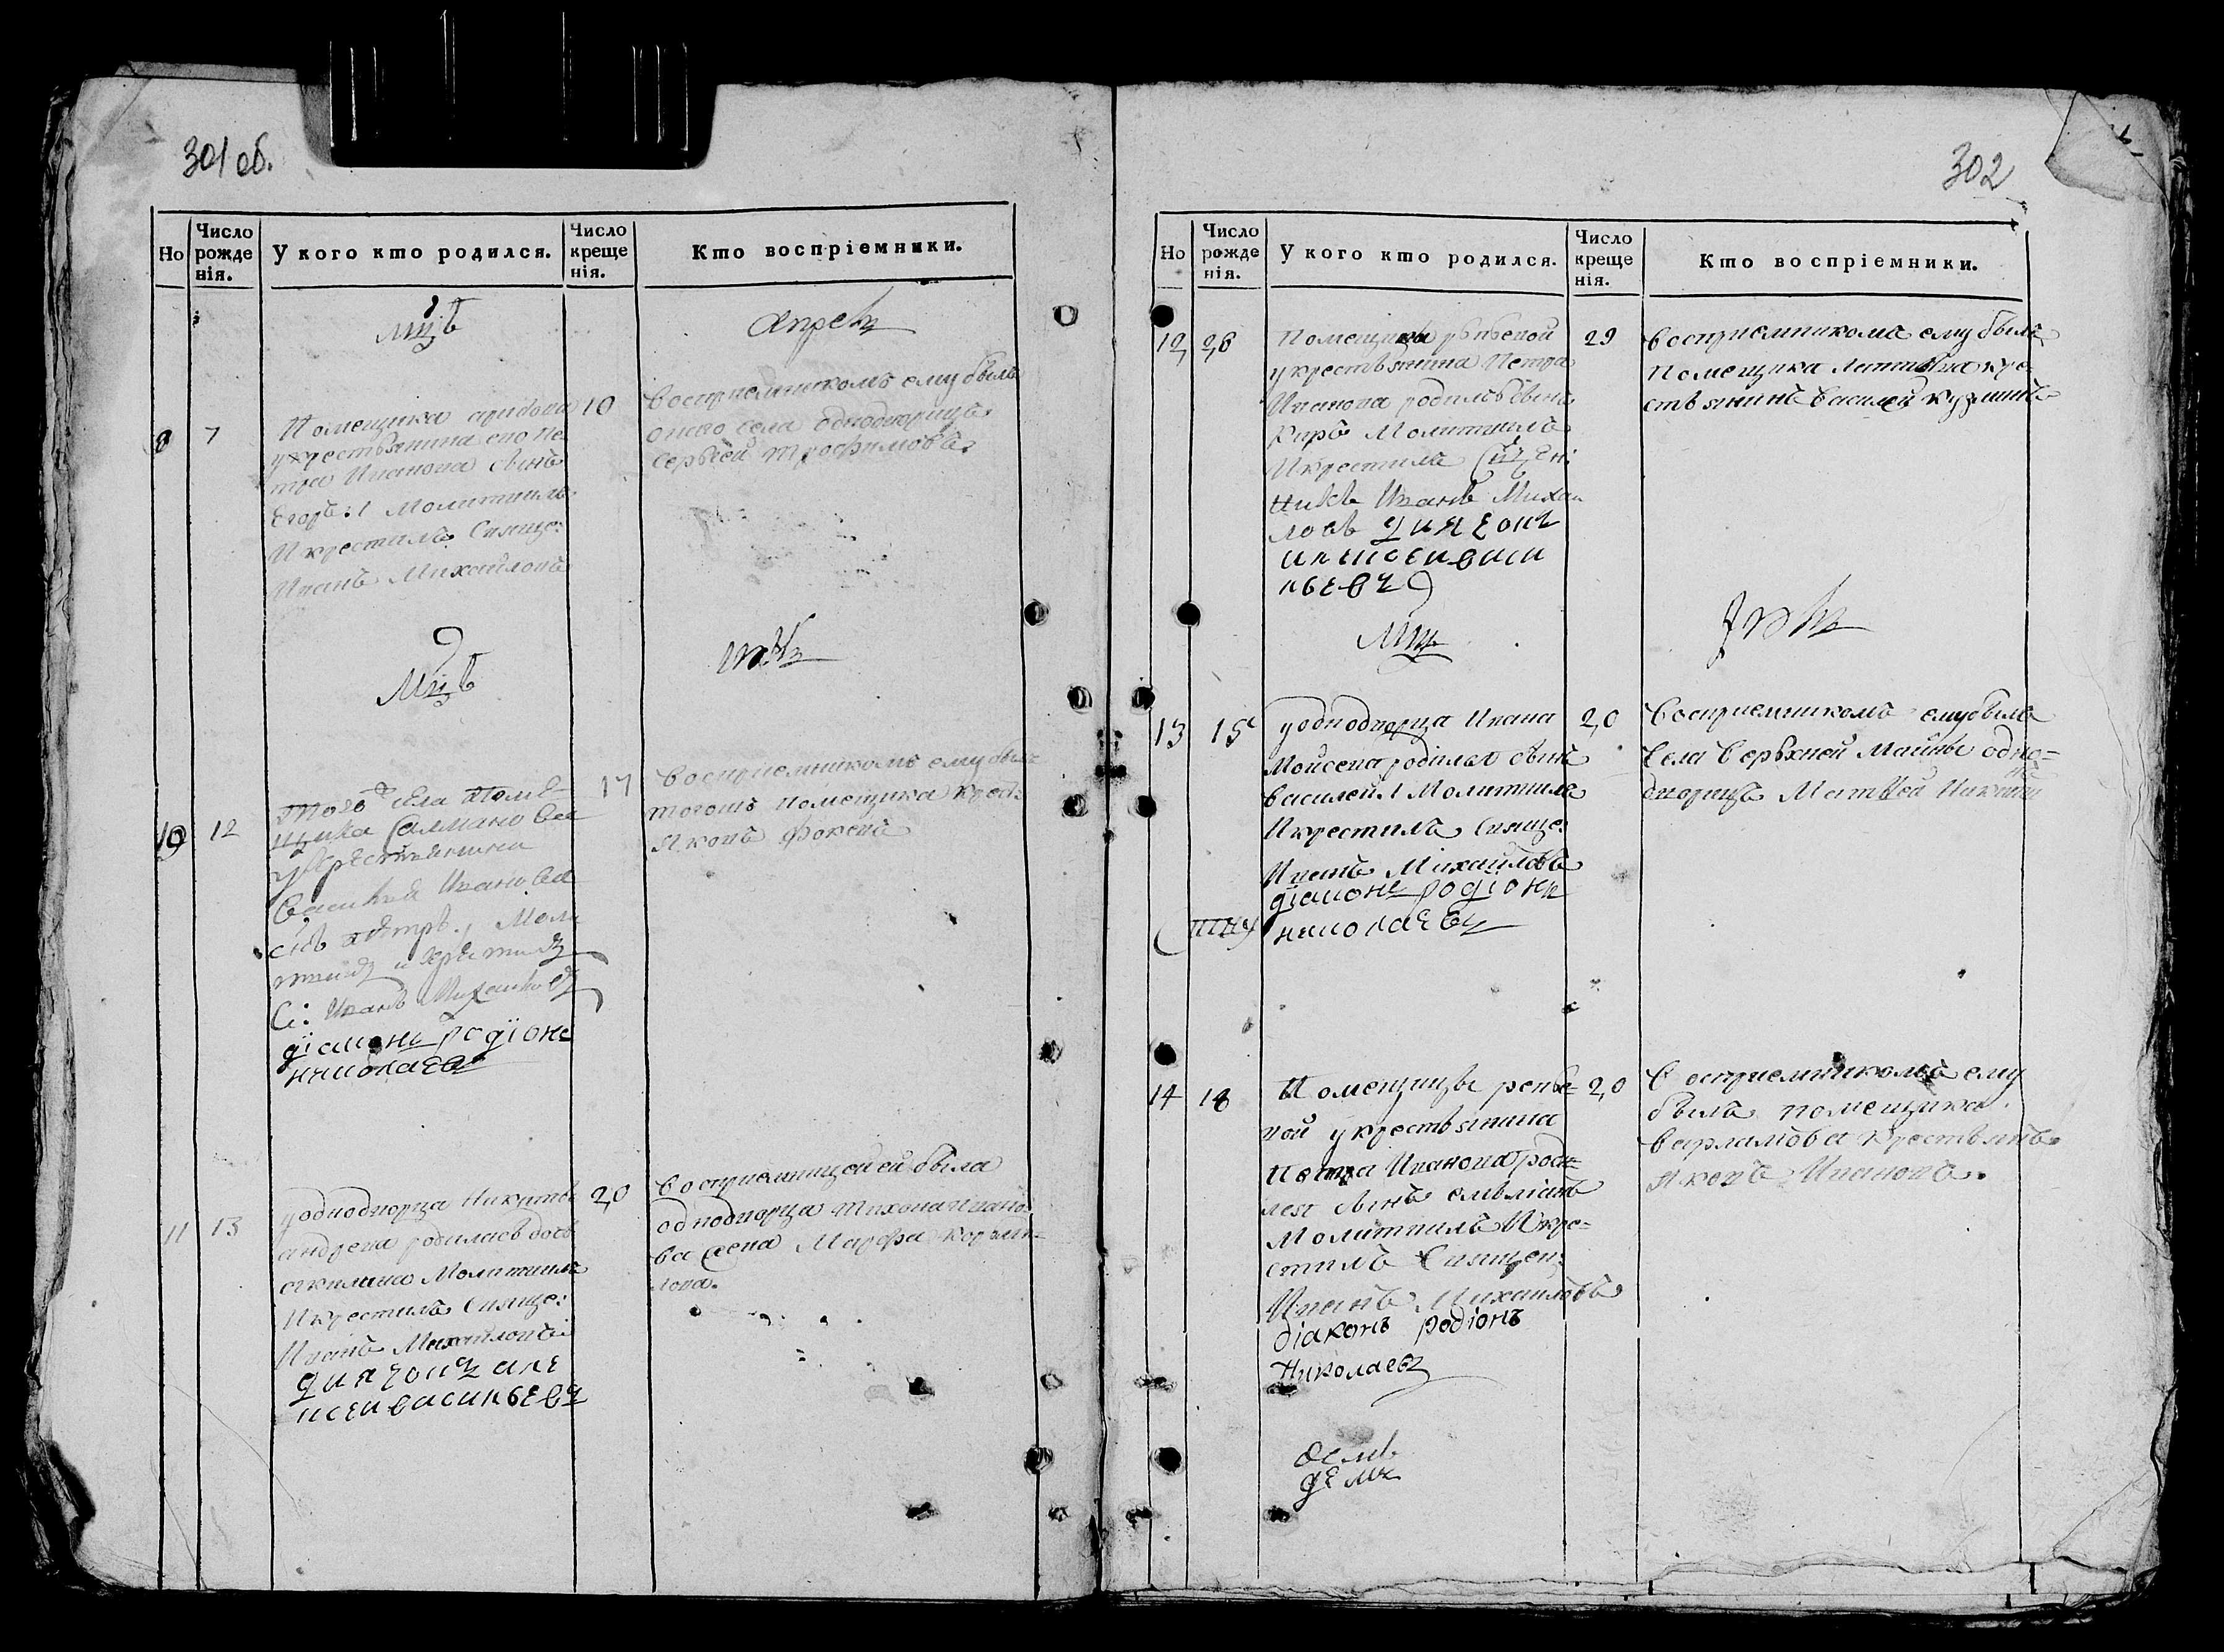 301 об.
Но
Число рожде нія.
У кого кто родился.
Число креще нія.
Кто воспріемники.
Мцъ
апрель
8
7
Помещика
укрествянина ево Пе
тра Иванова сынъ
Егоръ: Молитвилъ
И крестилъ Свяще:
Иванъ Михайловъ
10
Восприемникомъ ему былъ
оного села однодворецъ
Сергей Трофимовъ
Мцъ
12
Того села поме
щика
укрестьянина
Василья Иванова
снъ петръ. Моли
твилъ и крестилъ
С: Иванъ Михайловъ
діаконъ родіонъ
николаевъ
17
Восприемникомъ ему былъ
тогожъ помещика крест:
Яковъ Фокевъ
11
13
у однодворца Никиты
андрева родилась дочь
акилина Молитвилъ
И крестилъ Свяще:
Иванъ Михайловъ
дияконъ але
ксеи васильевъ
20
Восприемницей ей была
однодворца Тихона Ивано
ва жена Марфа
302
Но
Число рожде нія.
У кого кто родился.
Число креще нія.
Кто воспріемники.
12
26
Помещицы репьевой
укрествянина Петра
Иванова родилсь сынъ
Киръ Молитвилъ
И крестилъ Сщен:
никъ Иванъ Михаи
ловъ дияконъ
алексеи васи
льевъ
29
Восприемникомъ ему былъ
Помещика кре
ствянинъ Василей Кузминъ
Мцъ
13
15
у однодворца Ивана
Мойсева родился сынъ
василей Молитвилъ
И крестилъ Свяще:
Иванъ Михайловъ
діаконъ родіонъ
николаевъ
20
Восприемникомъ ему былъ
Села Верхней Майны одно=
дворецъ Матвей
14
18
Помещицы репье=
вой укрествянина
Петра Иванова роди=
лся сынъ емелианъ
Молитвилъ И кре=
стилъ Священ:
Иванъ Михаиловъ
діаконъ родіонъ
Николаевъ
20
Восприемникомъ ему
былъ помещика
варламова крествянъ
Яковъ Ивановъ.